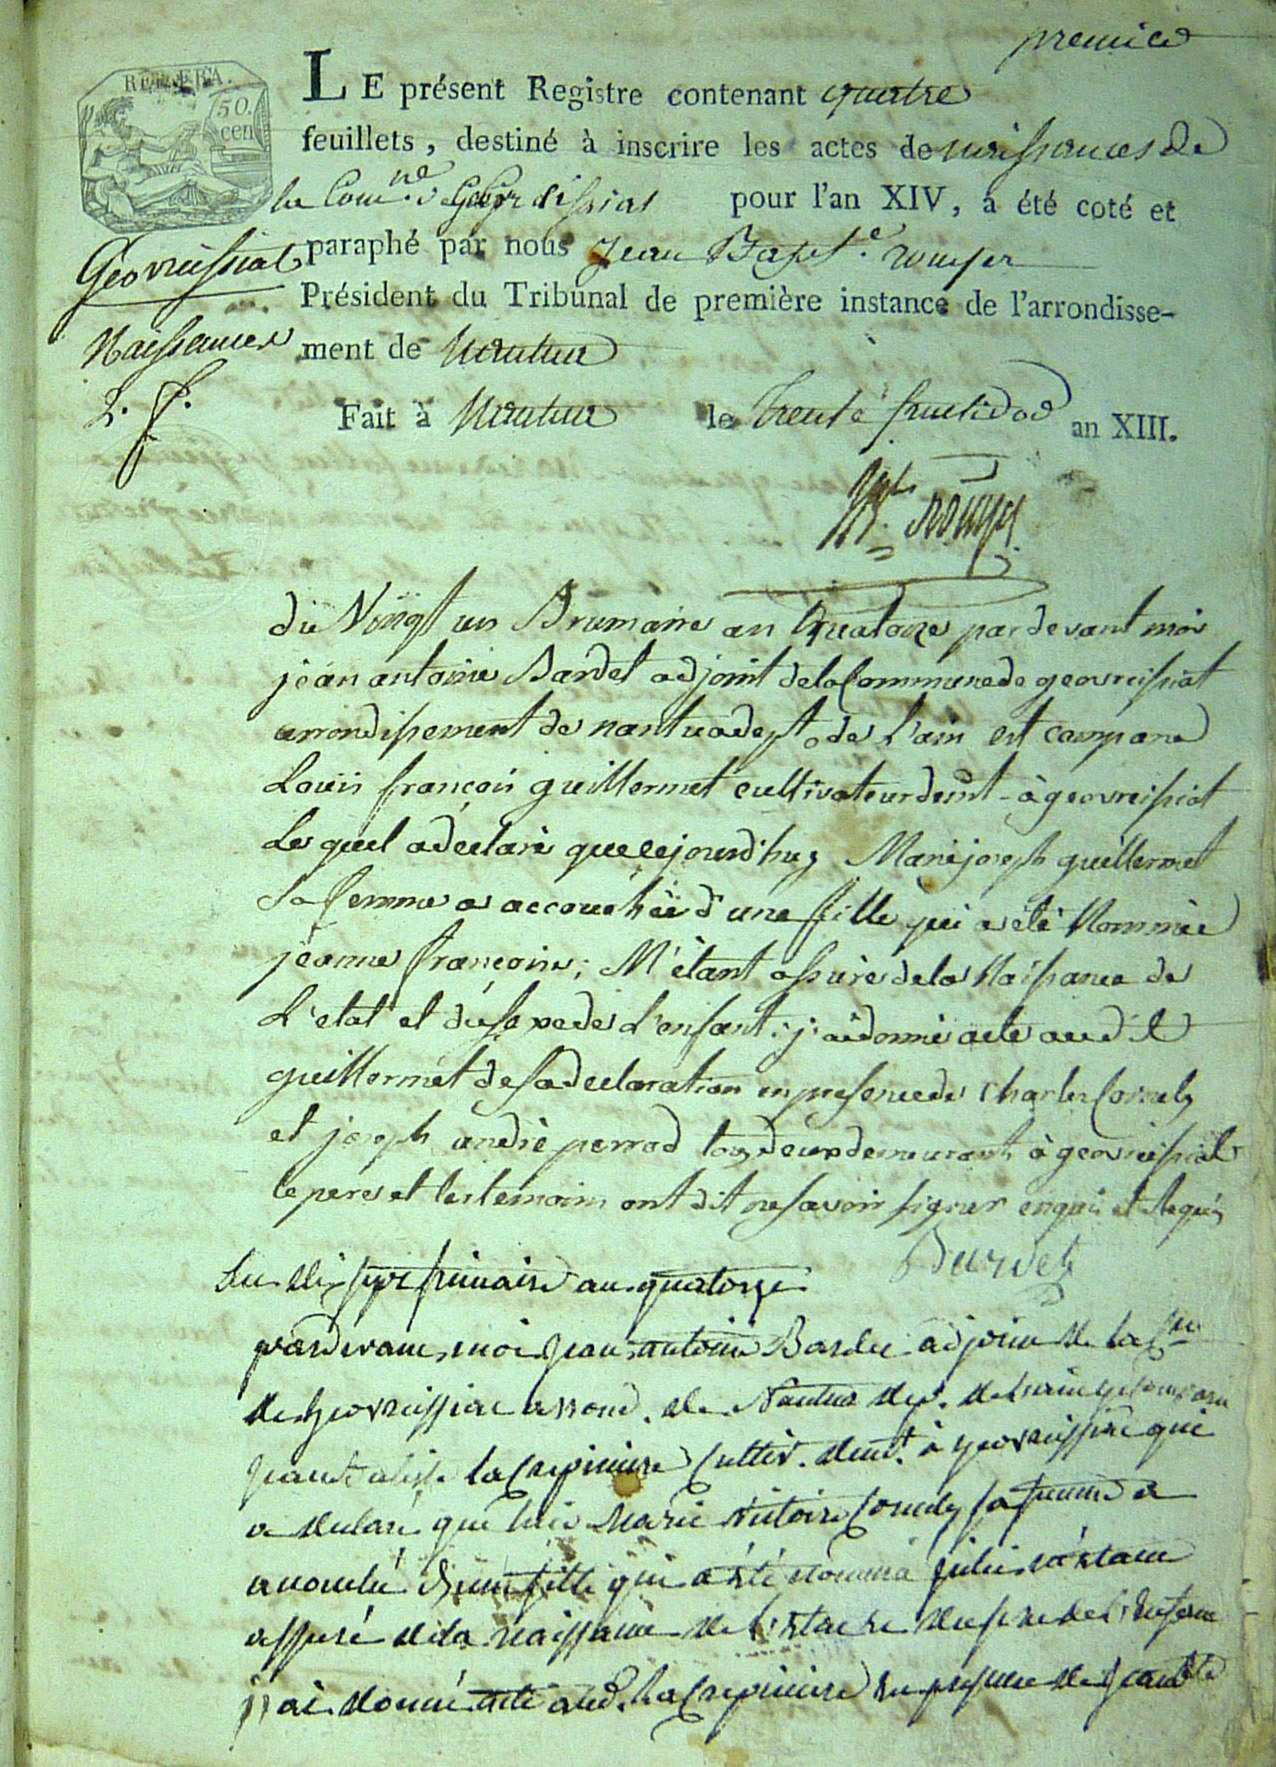 premier
REP. FRA.
50.
cen
LE présent Registre contenant quatre
feuillets, destiné à inscrire les actes de naissances de
la Com.ne de Geovreissiat pour l'an XIV, a été coté et
paraphé par nous Jean Bapt.e rouyer
Président du Tribunal de première instance de l'arrondisse-
ment de Nantua
Fait à Nantua le trente fructidor an XIII.
Geovreissiat
Naissances
Bt. rouyer
du Vingt un Brumaire an Quatorze par devant moi
jean antoine Bardet adjoint de la Commune de geovreissiat
arrondissement de nantua dept. de L'ain est comparu
Louis françois guillermet cultivateur demt. à geovreissiat
Lequel a declaré que cejourd'huy Marie joseph guillermet
Sa femme a accouchée d'une fille qui a été Nommée
jeanne françoise; M'étant assuré de la Naissance de
L'etat et du sexe de L'enfant: j'ai donné acte aud. t
guillermet de sa declaration en presence de charles Cornely
et joseph andré perrod tous deux demeurant à geovreissiat
le pere et les temoins ont dit ne savoir signer enquis et Requis
Bardet
Du dix sept frimaire an quatorze
pardevant moi Jean antoine Bardet adjoint de la Cne
de Geovreissiat arrond. de Nantua dep. de l'ain
la Crepiniere Cultiv. demt. à geovreissiat qui
a declaré que hier Marie Victoire Cornely sa femme a
accouché d'une fille qui a été nommé Julie m'étant
assuré de la naissance de l'etat et du sexe de l'enfant
j'ai donné acte aud. la Crepiniere en presence de Jean Bte